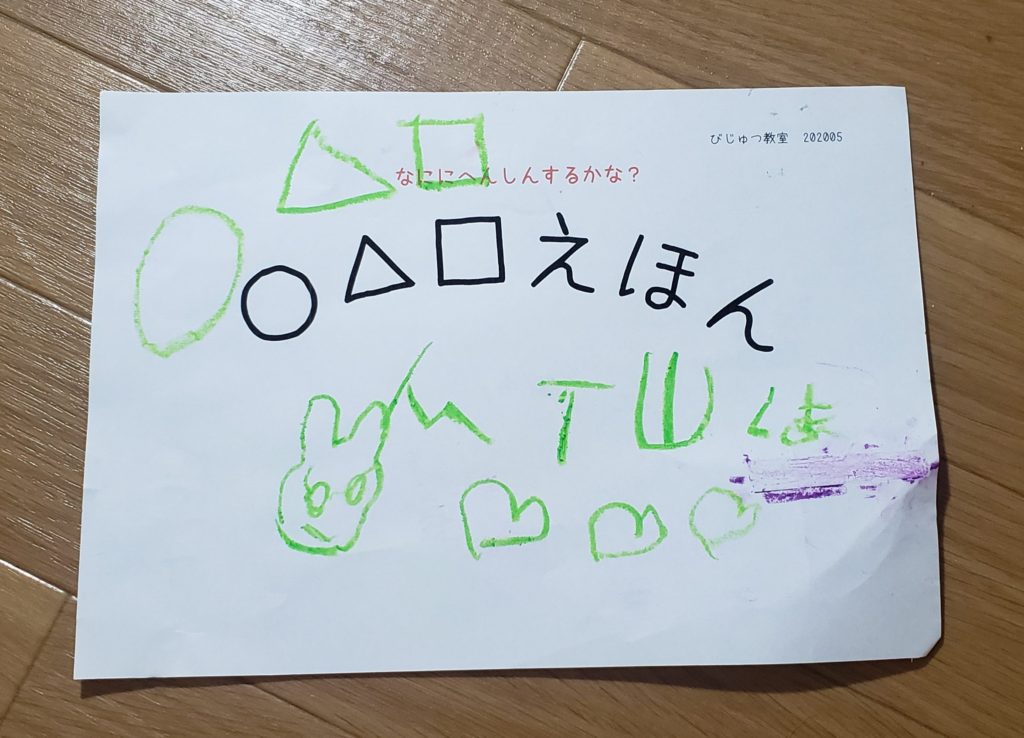 びじゅつ教室 202005
なににへんしんするかな?
○△□えほん